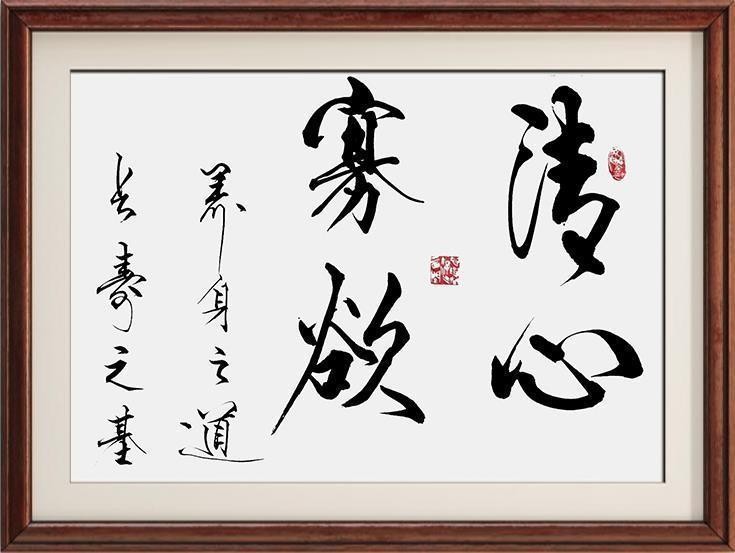 清心
寡欲
养身之道
长寿之基